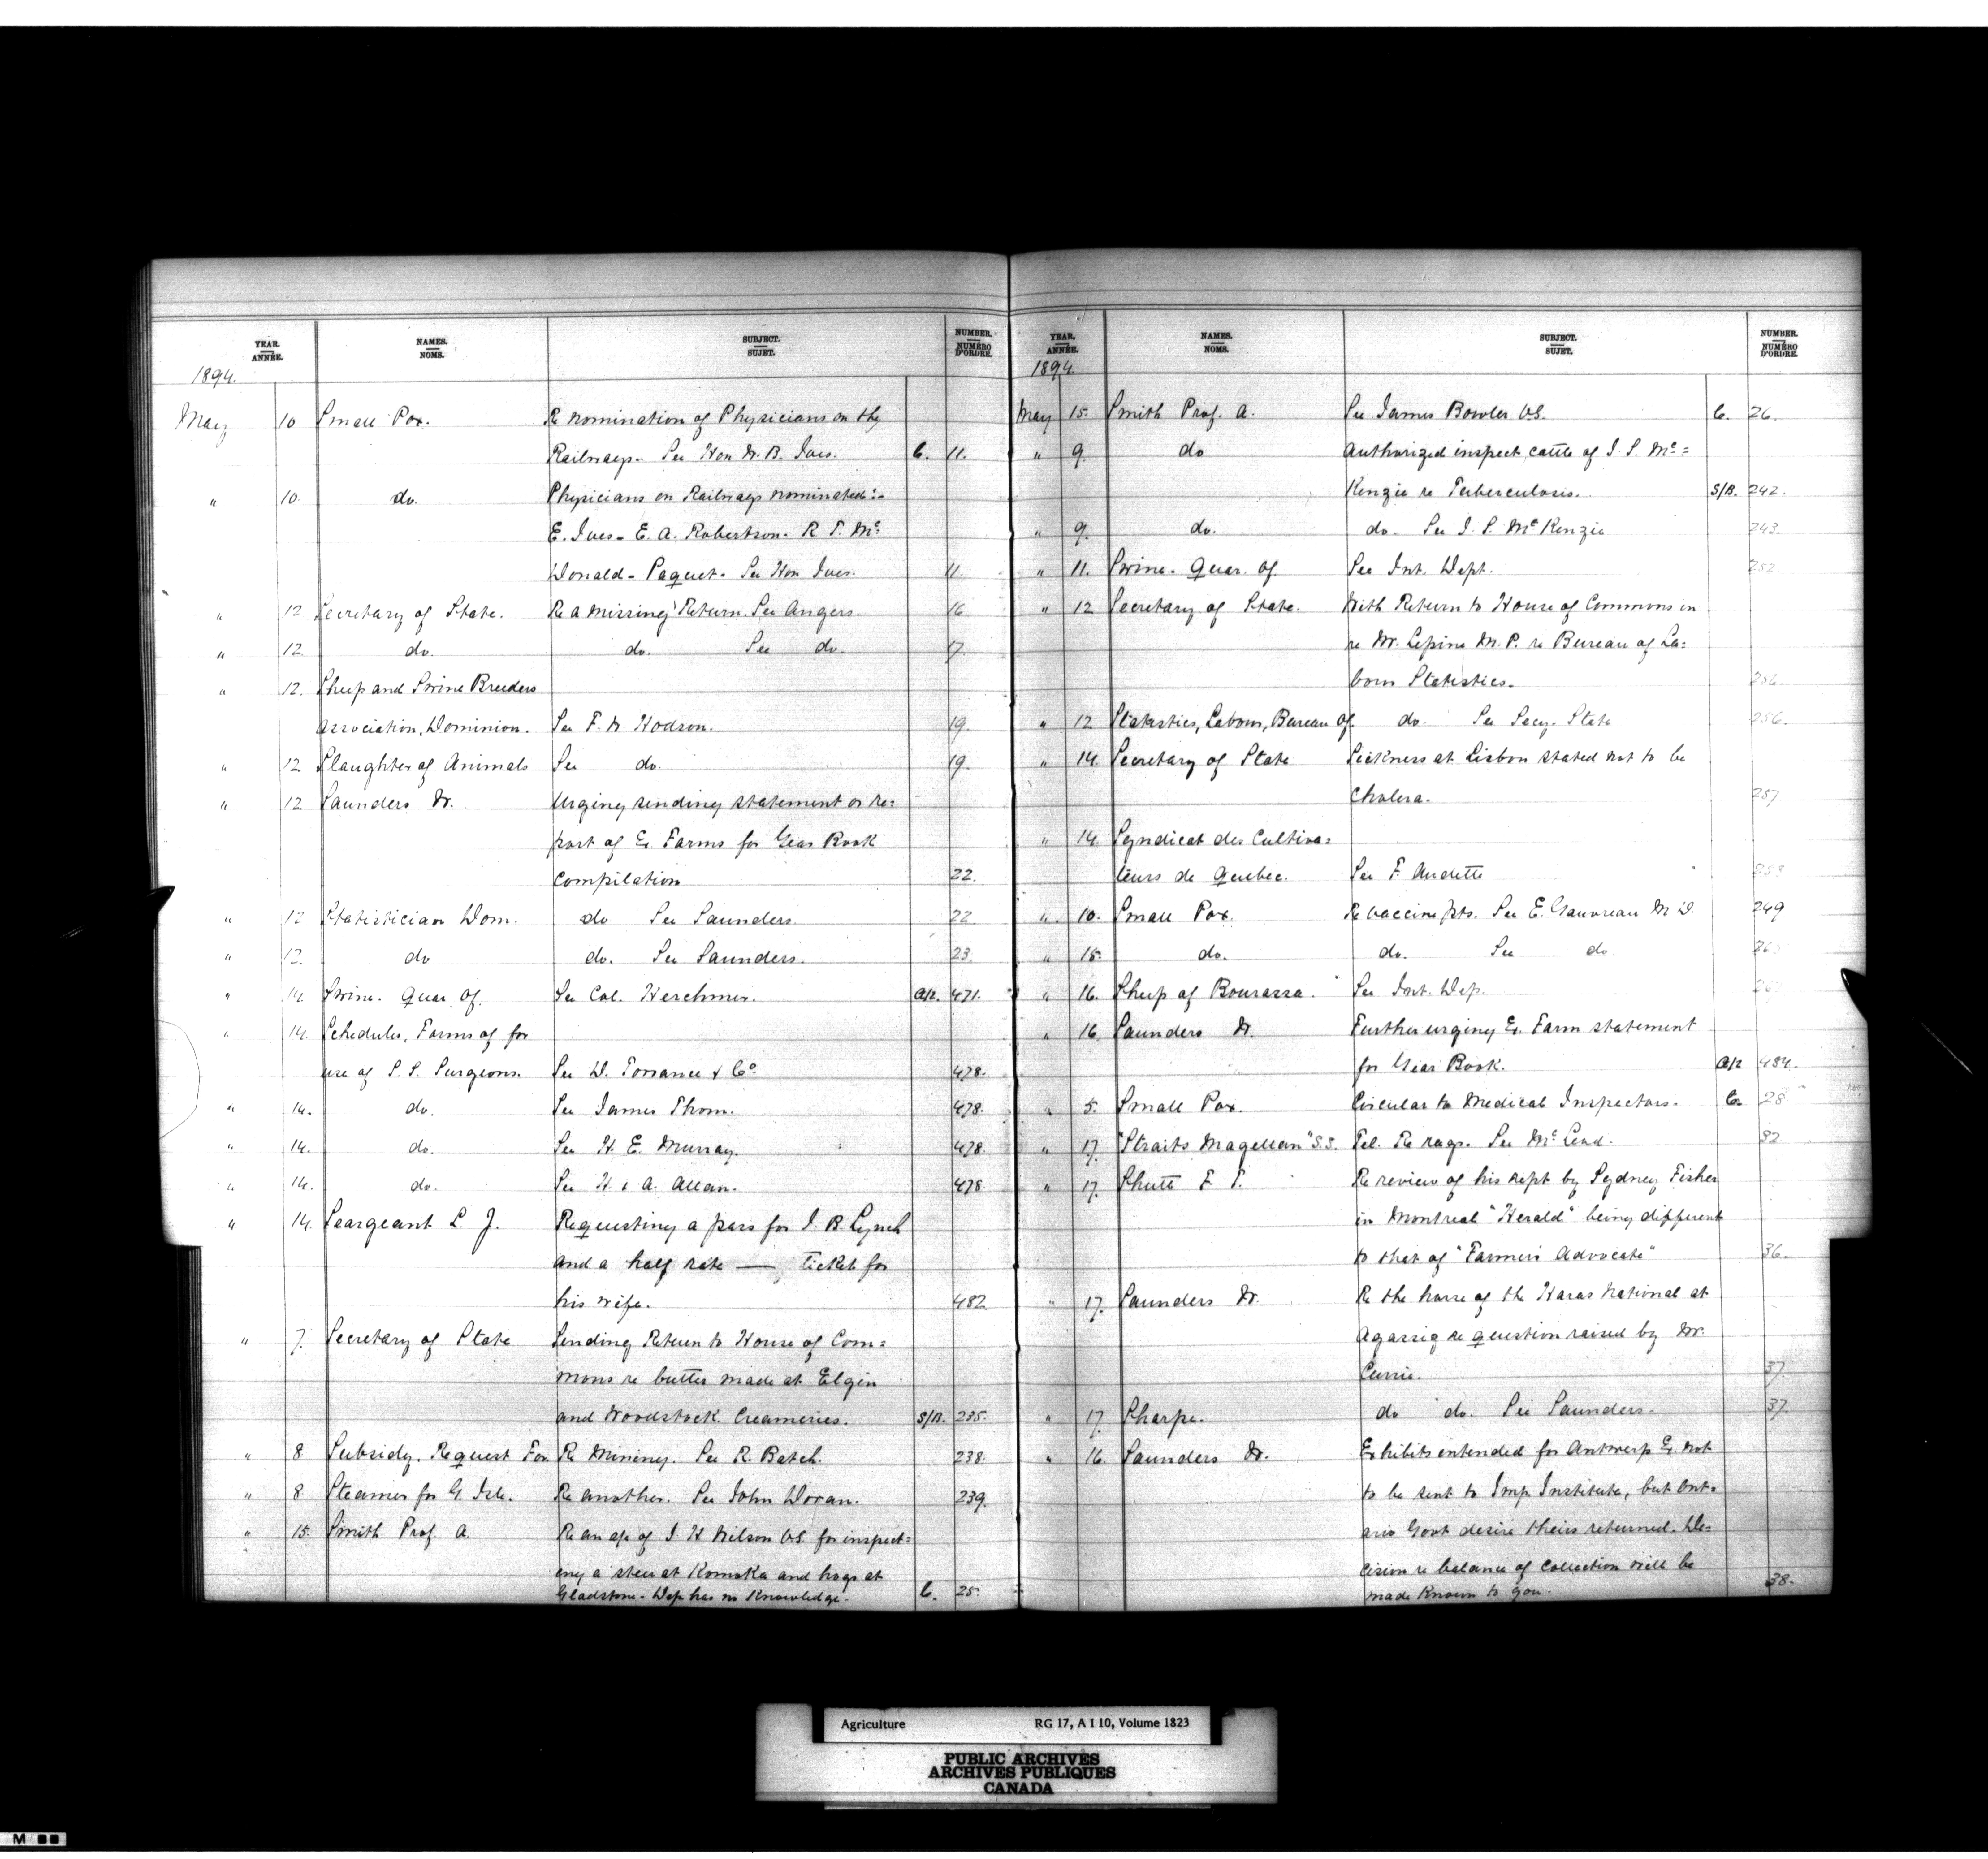 YEAR. ANNÉE. NAMES. NOMS. SUBJECT. SUJET. NUMBER. NUMÉRO D'ORDRE.
1894.
May 10 Small Pox. Re nomination of Physicians on the
Railways - See Hon W. B. Ives. C. 11.
" 10. do. Physicians on Railways nominated:-
E. Ives - E. A. Robertson - R. T. Mc=
Donald - Paquet - See Hon Ives. 11.
" 12 Secretary of State. Re a missing Return. See Angers. 16
" 12. do. do. See do. 17.
" 12. Sheep and Swine Breeders
Association, Dominion. See F. W Hodson. 19.
" 12 Slaughter of Animals See do. 19.
" 12 Saunders W. Urging sending statement or re=
port of Ex. Farms for Year Book
Compilation 22.
" 12 Statistician Dom. do See Saunders. 22.
" 12. do do. See Saunders. 23.
" 14 Swine. Quar. Of. See Col. Herchmer. 471.
" 14. Schedules, Forms of for
use of S. S. Surgeons. See D. Torrance & Co. 478.
" 14. do. See James Thom. 478.
" 14. do. See H. E. Murray. 478.
" 14. do. See H. & A. Allan. 478
" 14. Seargeant L. J. Requesting a pass for J. B. Lynch
and a half rate — ticket for
his wife. 482
" 7. Secretary of State Sending Return to House of Com=
mons re butter made at Elgin
and Woodstock Creameries. S/B. 235.
" 8 Subsidy. Request For Re Mining. See R. Batch. 238.
" 8 Steamer for G. Isle. Re another. See John Doran. 239.
" 15. Smith Prof A. Re an a/c of J. H Wilson V.S. for inspect=
ing a steer at Komoka and hogs at
Gladstone - Dep has no knowledge. C. 25.
YEAR. ANNÉE. NAMES. NOMS. SUBJECT. SUJET. NUMBER. NUMÉRO D'ORDRE.
1894.
May 15. Smith Prof. A. See James Bowler V.S. C. 26.
" 9. do Authorized inspect cattle of J. S. Mc=
Kenzie re Tuberculosis. S/B. 242.
" 9. do. do. See J. S. McKenzie 243.
" 11. Swine. Quar. Of. See Int. Dept. 252
" 12 Secretary of State. With Return to House of Commons in
re Mr. Lepine M.P. re Bureau of La=
bour Statistics. 256.
" 12 Statistics, Labour, Bureau Of. do. See Secy. State 256.
" 14. Secretary of State Sickness at Lisbon stated not to be
Cholera. 257
" 14. Syndicat des Cultiva=
teurs de Quebec. See F. Audette
" 10. Small Pox. Re vaccine pts. See E. Gauvreau M D. 249
" 15. do. do. See do
" 16. Sheep of Bourassa. See Int. Dep.
" 16. Saunders W. Further urging Ex. Farm statement
for Year Book. 484.
" 5. Small Pox. Circular to Medical Inspectors. C. 28
" 17. "Straits Magellan" S.S. Tel. Re rags. See McLeod. 32
" 17. Shutt F. T. Re review of his rept by Sydney Fisher
in Montreal "Herald" being different
to that of "Farmers Advocate" 36.
" 17. Saunders W. Re the horse of the Haras National at
Agassiz re question raised by Mr.
Currie. 37.
" 17. Sharpe. do do. See Saunders. 37.
" 16. Saunders W. Exhibits intended for Antwerp Ex. not
to be sent to Imp. Institute, but Ont=
ario Govt desire theirs returned. De=
cision re balance of collection will be
made known to you. 38.
Agriculture RG 17, A I 10, Volume 1823
PUBLIC ARCHIVES
ARCHIVES PUBLIQUES
CANADA
M